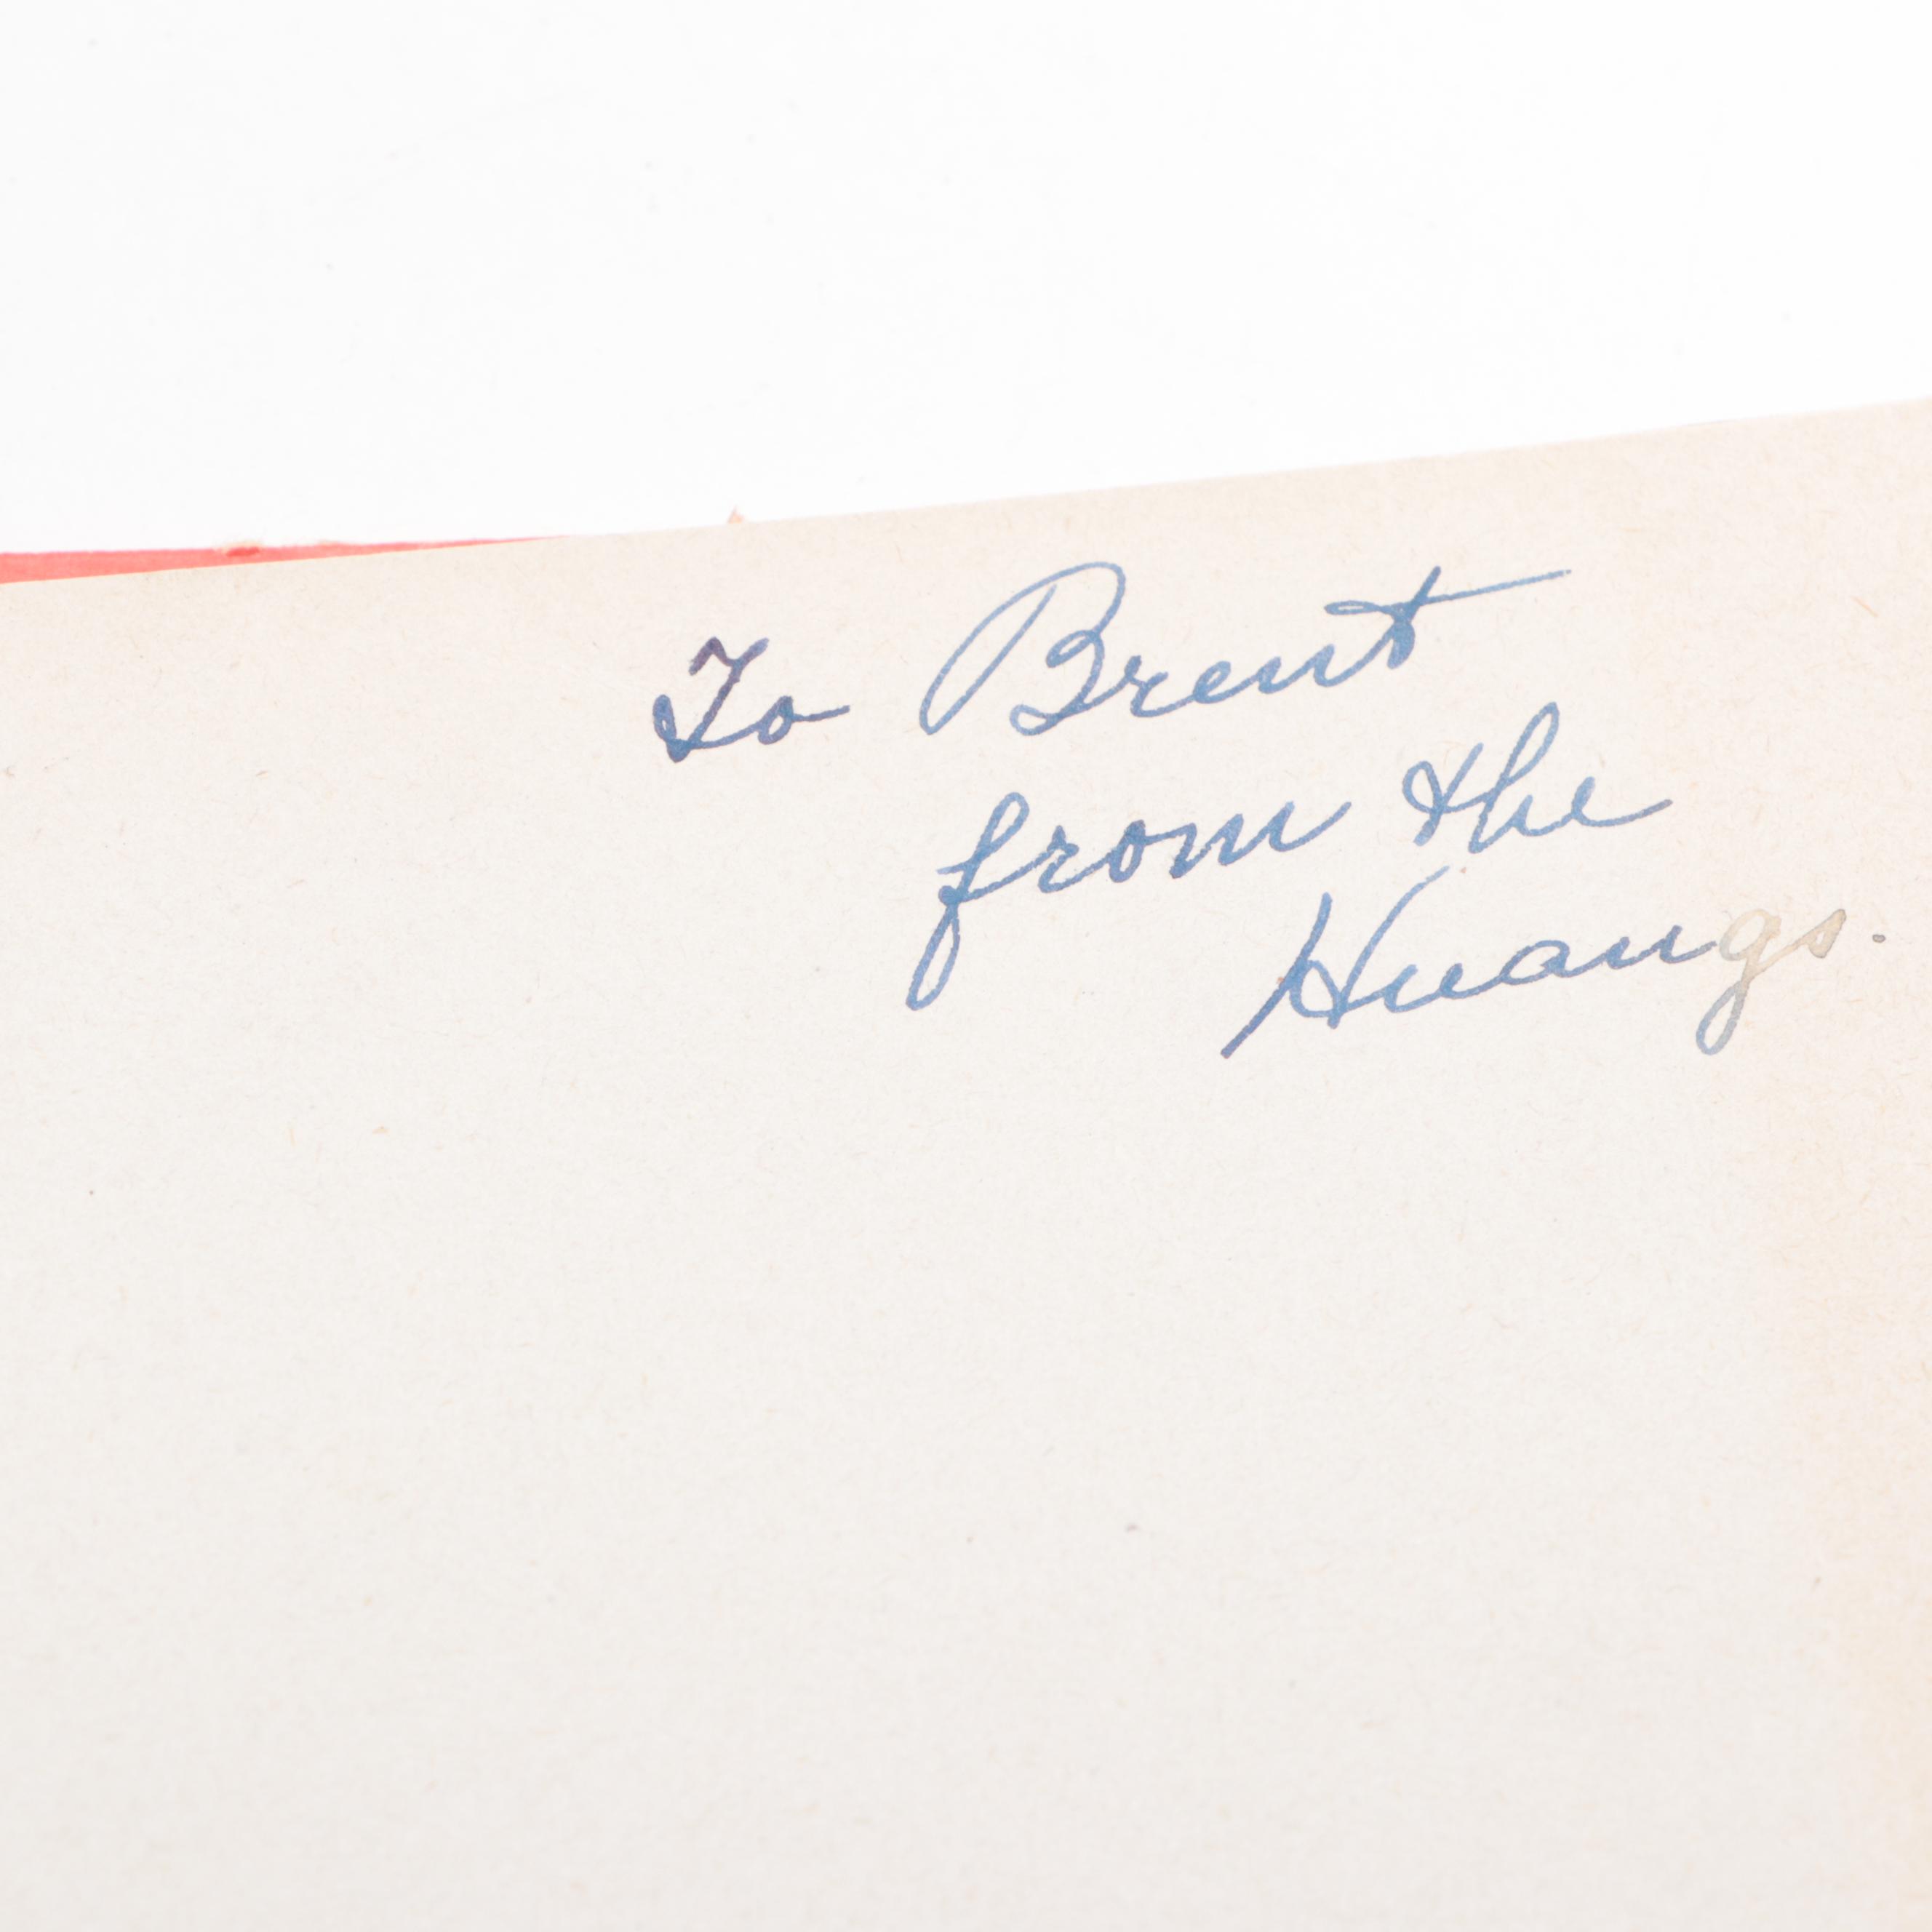 To Brent
from the
Huangs.